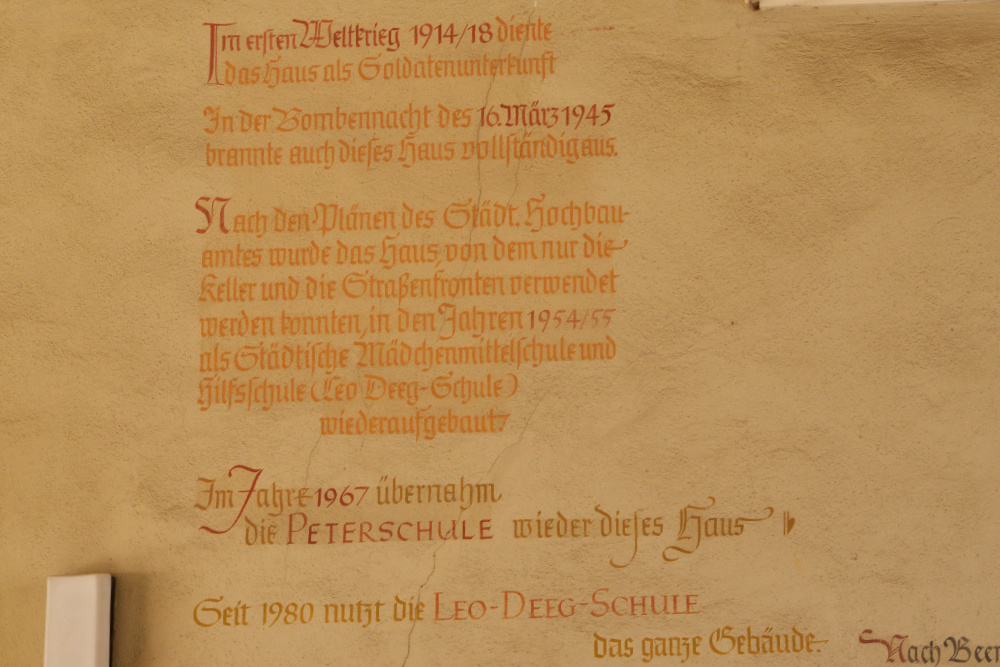 Im ersten Weltkrieg 1914/18 diente
das Haus als Soldatenunterkunft
In der Bombennacht des 16. März 1945
brannte auch dieses Haus vollständig aus.
Nach den Plänen des Städt. Hochbau-
amtes wurde das Haus, von dem nur die
Keller und die Straßenfronten verwendet
werden konnten, in den Jahren 1954/55
als Städtische Mädchenmittelschule und
Hilfsschule (Leo Deeg-Schule)
wiederaufgebaut.
Im Jahre 1967 übernahm
die PETERSCHULE wieder dieses Haus
Seit 1980 nutzt die LEO-DEEG-SCHULE
das ganze Gebäude.
Nach Beer